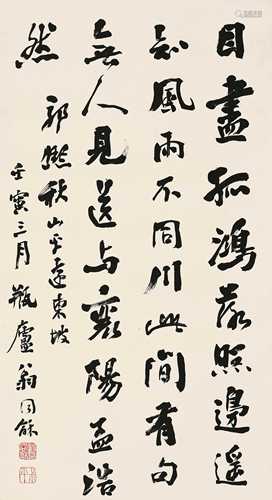 目盡孤鴻落照邊遥
知風雨不同川此間有句
無人見送与襄陽孟浩
然
郭熙秋山平遠東坡
壬寅三月瓶廬翁同龢